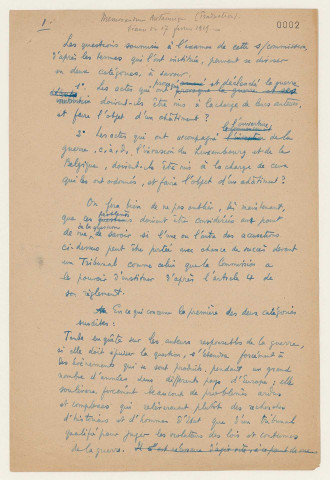 1.
Memorandum historique (Tentative)
séance du 17 février 1919
0002
Les questions soumises à l'examen de cette s/commission,
d'après les termes qui l'ont instituée, peuvent se diviser
en deux catégories, à savoir :
1° Les actes qui ont provoqué et déclaré la guerre
doivent-ils être mis à la charge de leurs auteurs
et faire l'objet d'un châtiment ?
2° Les actes qui ont accompagné l'ouverture de la
guerre, c.à.d., l'invasion du Luxembourg et de la
Belgique, doivent-ils être mis à la charge de ceux
qui les ont ordonnés, et faire l'objet d'un châtiment ?
On fera bien de ne pas oublier, dès maintenant,
que ces doivent être considérées au point
de vue de savoir si l'une ou l'autre des accusations
ci-dessus peut être portée avec chance de succès devant
un Tribunal comme celui que la Commission a
le pouvoir d'instituer d'après l'article 4 de
son règlement.
En ce qui concerne la première des deux catégories
susdites :
Toute enquête sur les auteurs responsables de la guerre,
si elle doit épuiser la question, s'étendra forcément à
des événements qui se sont produits, pendant un grand
nombre d'années, dans différents pays d'Europe ; elle
soulèvera forcément beaucoup de problèmes ardus
et complexes qui relèveraient plutôt des recherches
d'historiens et d'hommes d'Etat que d'un Tribunal
qualifié pour juger les violateurs des lois et coutumes
de la guerre.